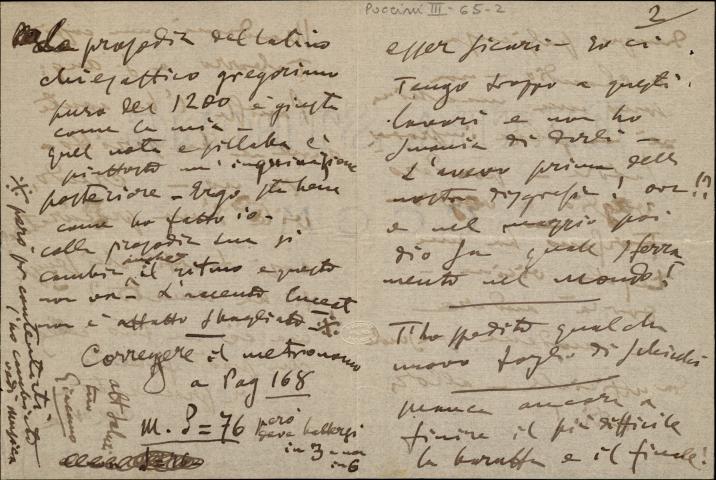 Puccini III-65-2
2
esser sicuri - Io ci
Tengo troppo a questi
lavori e non ho
smania di darli -
L'avevo prima della
nostra disgrazia! ora!?
e nel maggio poi
dio sa quale sferra
mento nel mondo!
T'ho spedito qualche
nuovo foglio di Schicchi
manca ancora a
finire il più difficile
la baruffa e il finale!
La prosodia del latino
chiesastico gregoriano
puro del 1200 è giusta
come la mia -
quel nota e sillaba è
piuttosto un'
posteriore - Ergo sta bene
come ho fatto io -
colla prosodia tua si
cambia anche il ritmo e questo
non va - L'accento luceat
non è affatto sbagliato ※
Correggere il metronomo
a Pag 168
M. = 76 però
deve battersi
in 3 e non
in 6
aff saluti
tuo
Giacomo
※ però per contentarti
l'ho cambiato
vedi musica